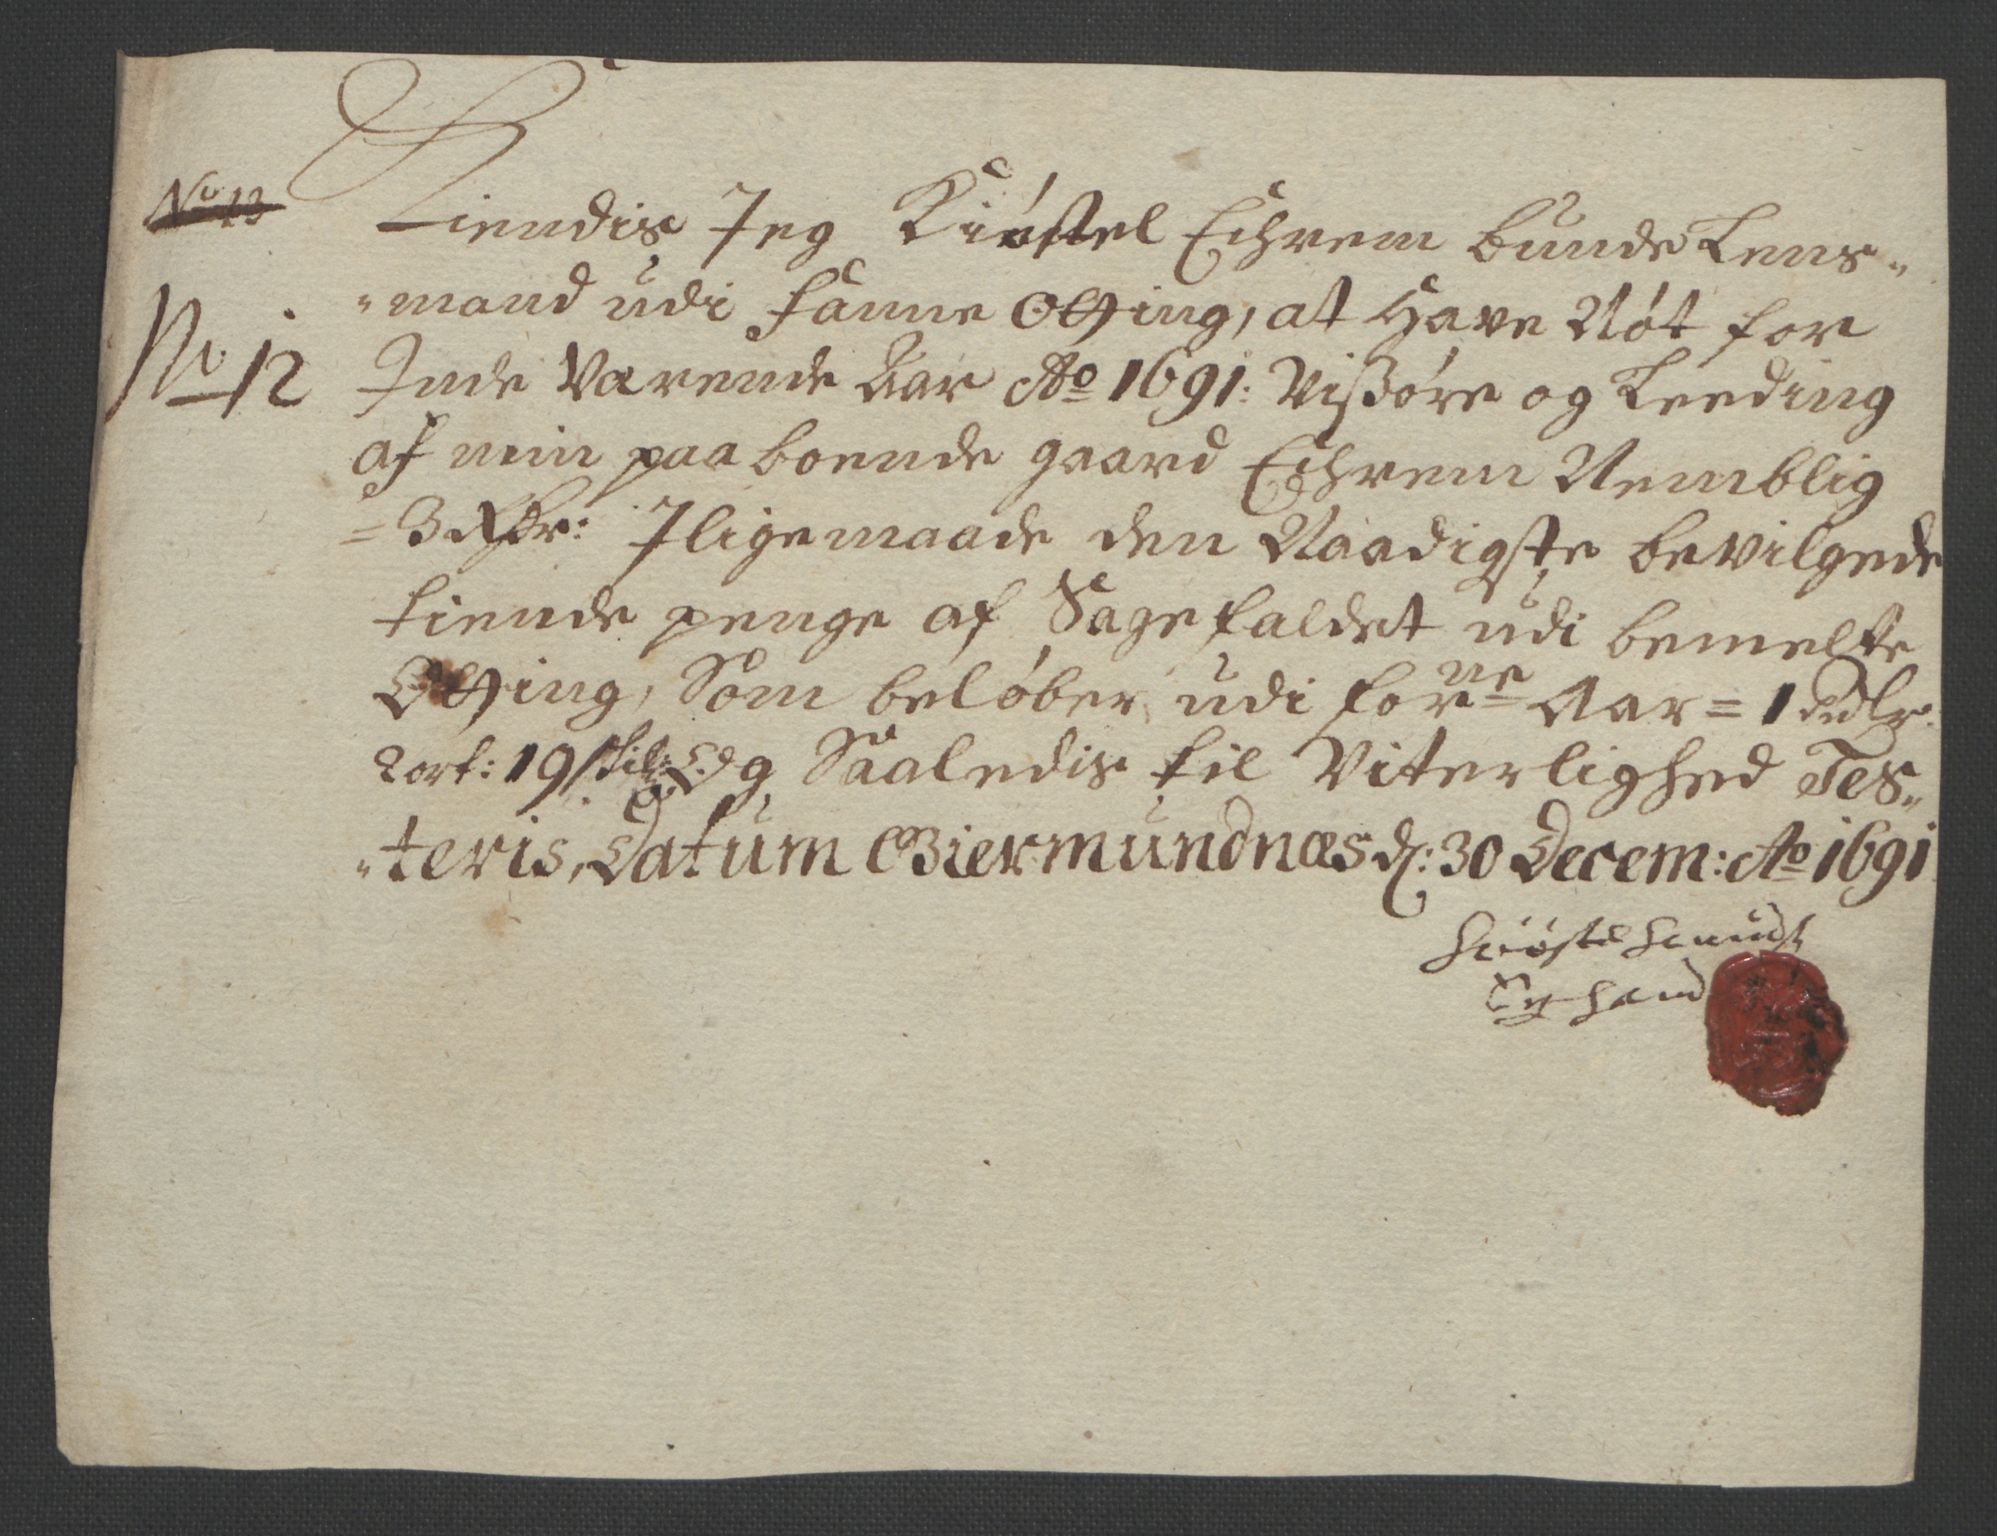 No 13
Kiendis Jeg Kiøstel Echrem bunde Lens-
-mand udi Fanne Otting, at Have Nøt for
No 12 Inde Værende Aar Ao 1691: Visøre og Leeding
af min paaboende gaard Echrem Nemblig
= 3 Rdr: Iligemaade den Naadigste bevilgede
tiende penge af Sagefaldet udi bemelte
Otting, Som beløber udi forne Aar = 1 Rdlr.
2 ort: 19 skil: Og Saaledis til Viterlighed Tes-
-teris, Datum Biermundnæs d: 30 Decem: Ao 1691
Kiøstel Knuds
Eg hand